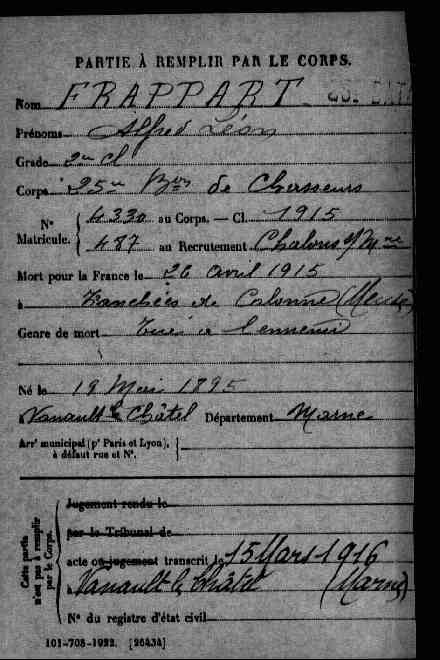 PARTIE À REMPLIR PAR LE CORPS.
Nom FRAPPART
Prénoms Alfred Léon
Grade 2me cl
Corps 25me Bon de Chasseurs
N° Matricule. { 4330 au Corps. — Cl. 1915
487 au Recrutement Chalons s/Mne
Mort pour la France le 26 avril 1915
à Tranchées de Calonne (Meuse)
Genre de mort Tué à l'ennemi
Né le 19 Mai 1895
à Vanault le Châtel Département Marne
Arr' municipal (p' Paris et Lyon), à défaut rue et N°.
Cette partie n'est pas à remplir par le Corps.
Jugement rendu le
par le Tribunal de
acte ou jugement transcrit le 15 Mars 1916
à Vanault le Châtel (Marne)
N° du registre d'état civil
101-708-1922. [26434]